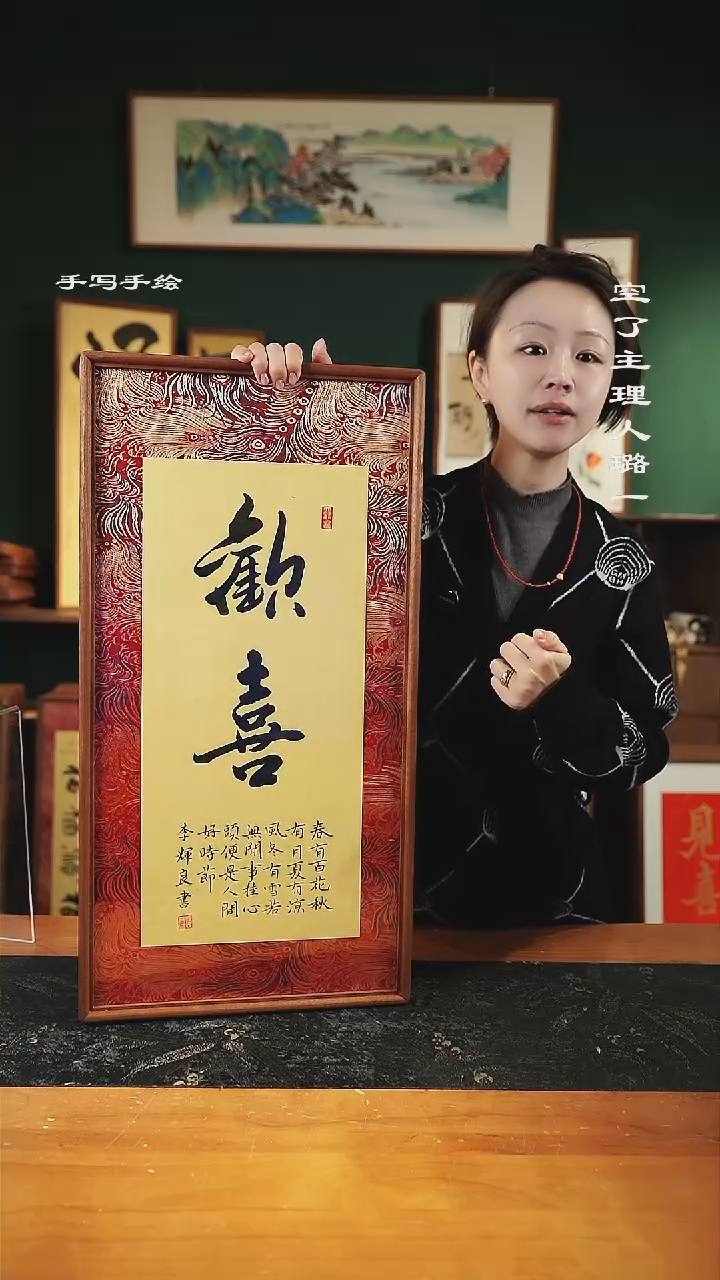 手写手绘
空了主理人璐一
歡喜
春有百花秋
有月夏有涼
風冬有雪若
無閒事挂心
頭便是人間
好時節
李輝良書
見喜